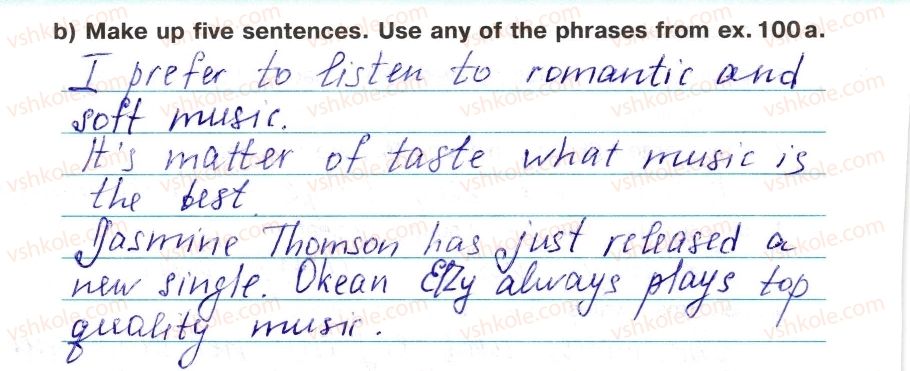 b) Make up five sentences. Use any of the phrases from ex. 100 a.
I prefer to listen to romantic and
soft music.
It's matter of taste what music is
the best.
Jasmine Thomson has just released a
new single. Okean Elzy always plays top
quality music.